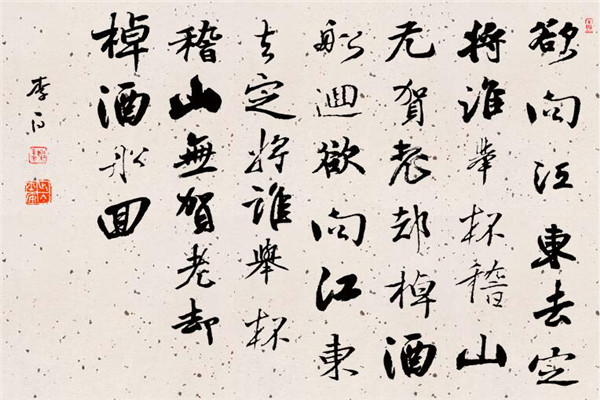 欲向江東去定
將誰舉杯稽山
无賀老却棹酒
船迴欲向江東
去定將誰舉杯
稽山無賀老却
棹酒船回
李